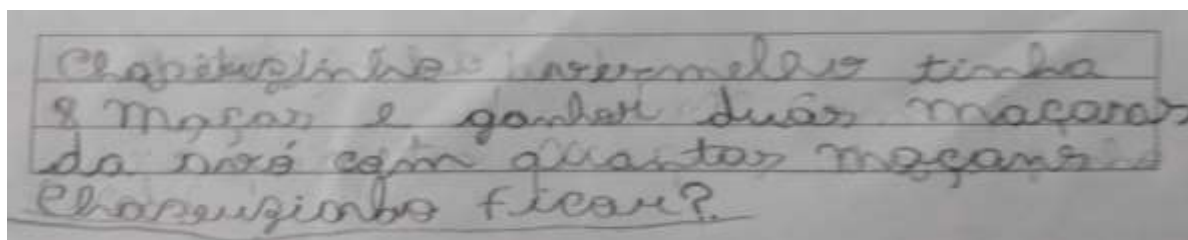 Chapeuzinho vermelho tinha
8 maçãs e ganhou duas maçãs
da vovó com quantas maçans
Chapeuzinho ficou?